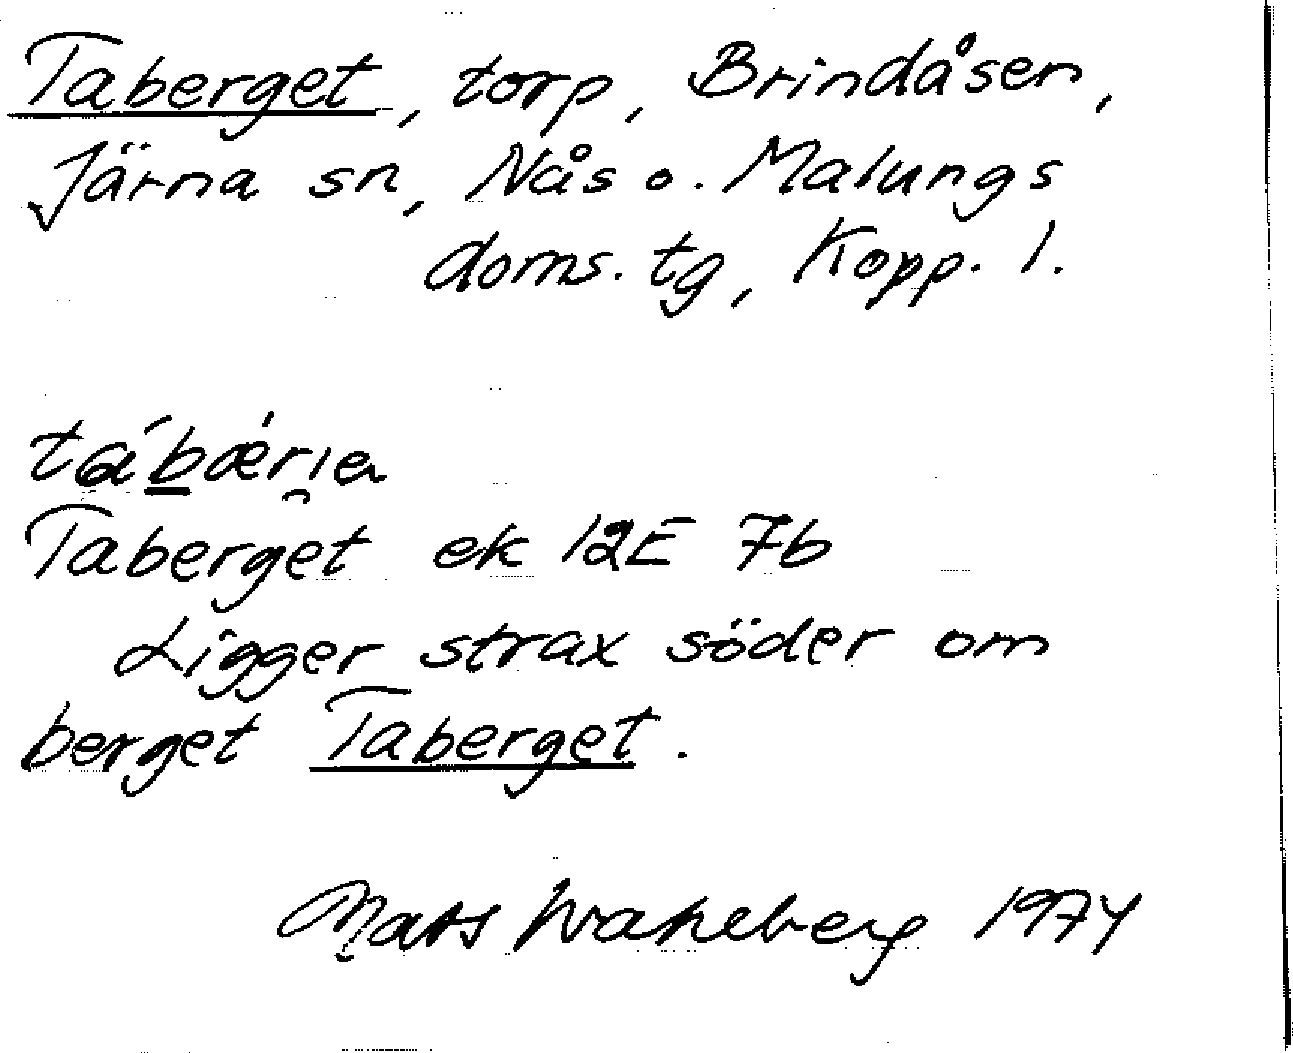 Taberget, torp, Brindåsen,
Järna sn, Nås o. Malungs
doms. tg, Kopp. l.
Taberget ek 12E 7b
Ligger strax söder om
berget Taberget.
Mats Wahlberg 1974